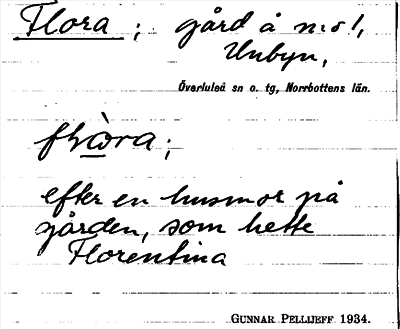 Flora; gård å n:o 1,
Unbyn,
Överluleå sn o. tg, Norrbottens län.
efter en husmor på
gården, som hette
Florentina
GUNNAR PELLIJEFF 1934.